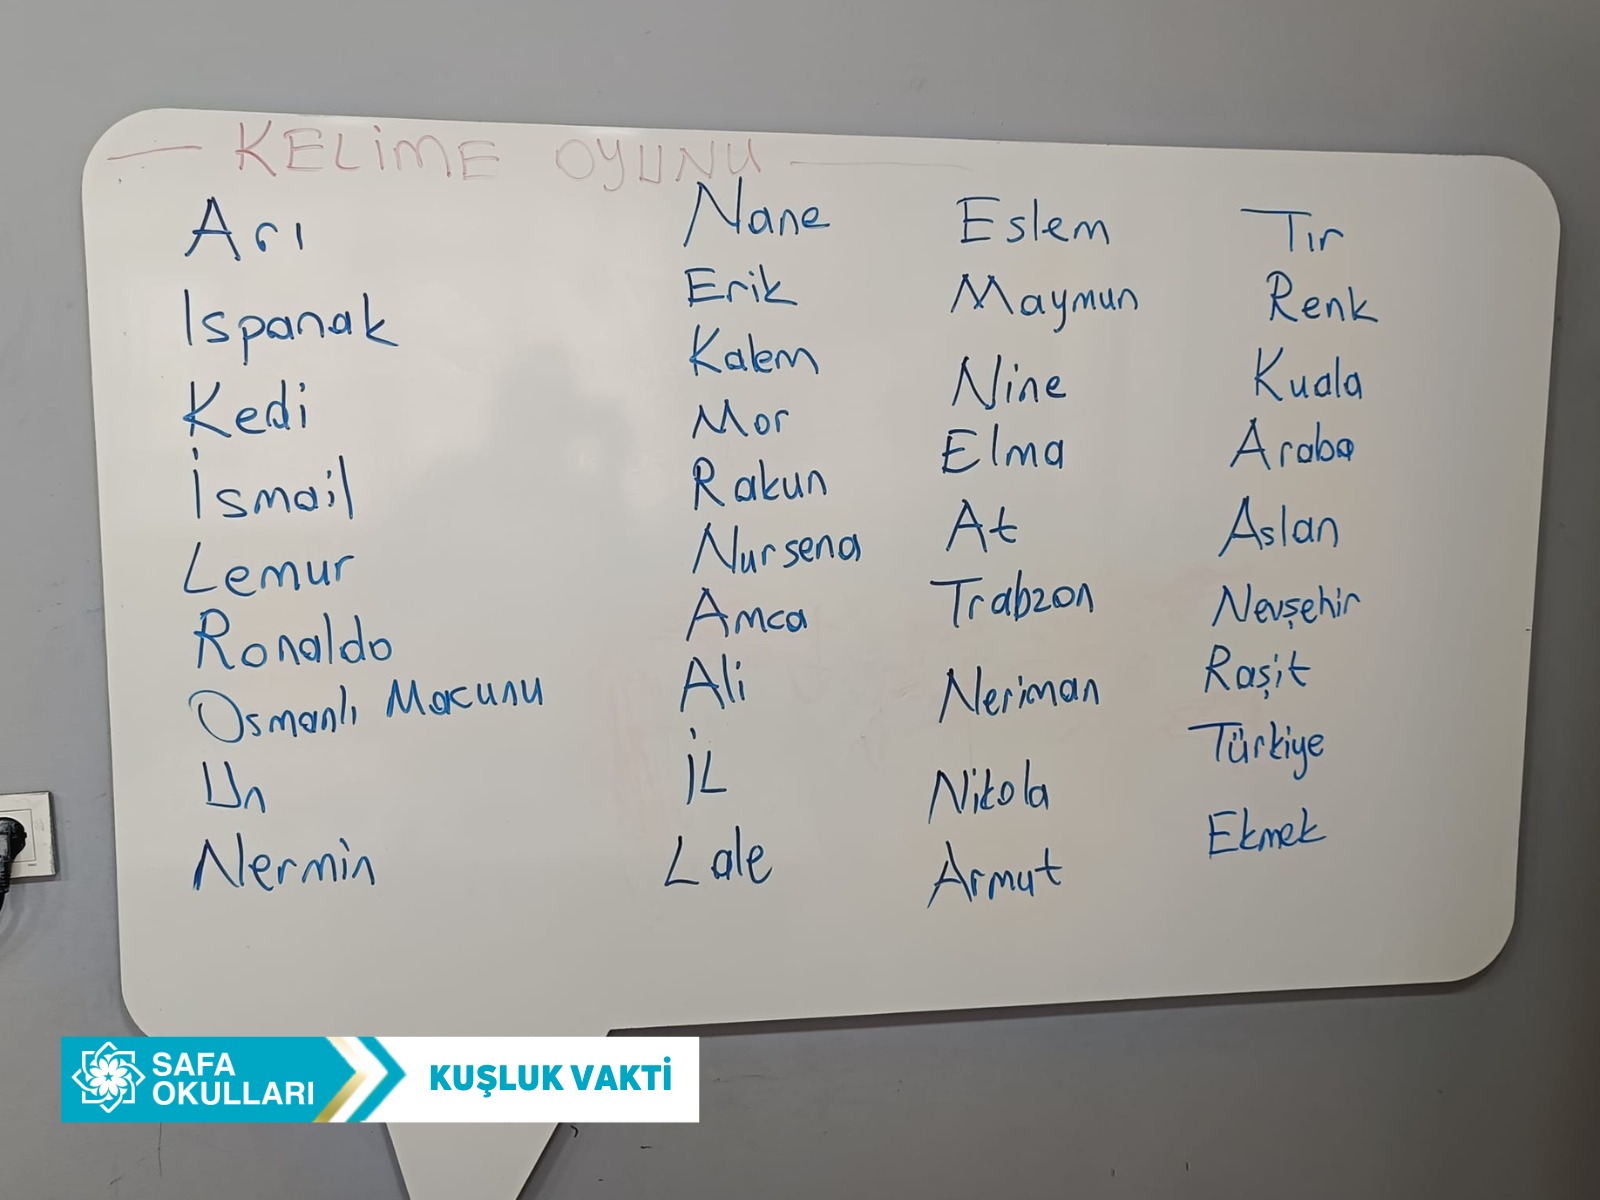 KELİME OYUNU
Arı
Ispanak
Kedi
İsmail
Lemur
Ronaldo
Osmanlı Macunu
Un
Nermin
Nane
Erik
Kalem
Mor
Rakun
Nursena
Amca
Ali
İL
Lale
Eslem
Maymun
Nine
Elma
At
Trabzon
Neriman
Nikola
Armut
Tır
Renk
Kuala
Araba
Aslan
Nevşehir
Raşit
Türkiye
Ekmek
SAFA
OKULLARI
KUŞLUK VAKTİ